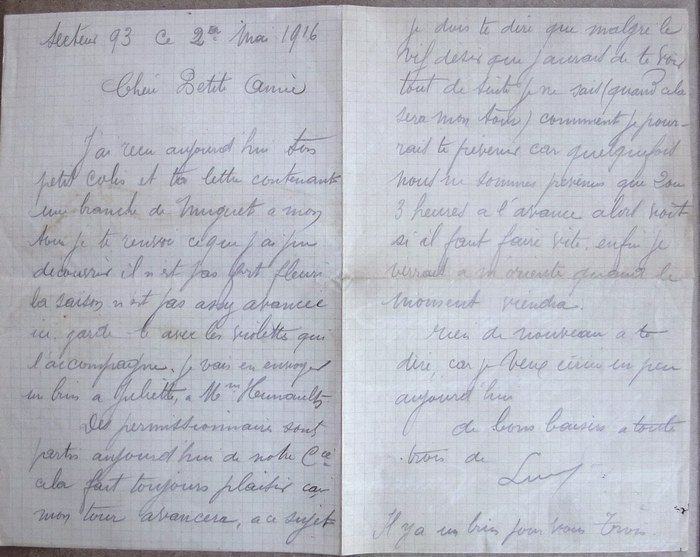 Secteur 93 Ce 2 Mai 1916
Cher Petite Amie
J'ai recu aujourd'hui ton
petit colis et ta lettre contenante
une branche de muguet a mon
tour je te renvoi ce que j'ai pu
decouvrir il n'est pas fort fleuri
la saison n'est pas assy avancee
ici. garde-l avec les violettes qui
l'accompagne. je vais en envoyer
un brin a Juliette, a Mme
Des permissionnaire sont
partis aujourd'hui de notre Cie
cela fait toujours plaisir car
mon tour avancera, a ce sujet
je dois te dire que malgre le
vif desir que j'aurait de te voir
tout de suite je ne sait (quand cela
sera mon tour) comment je pour-
rait te prevenir car quelquefois
nous ne sommes prevenus que 2 ou
3 heures a l'avance alors voit
si il faut faire vite. enfin je
verrait a m'orienté quand le
moment viendra.
rien de nouveau a te
dire, car je veux ecrire un peu
aujourd'hui
de bons baisers a toute
trois de
Il y a un brin pour vous Trois